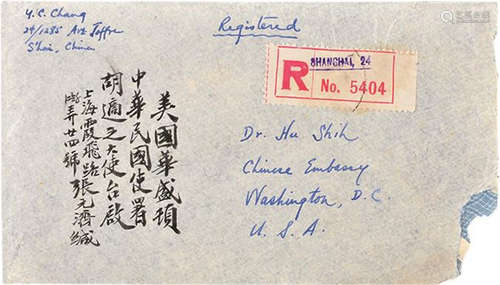 Y. C. Chang
24/1285 Ave. Joffre
S'hai, China
Registered
SHANGHAI, 24
R No. 5404
美國華盛頓
中華民國使署
胡適之大使台啟
上海霞飛路
弄廿四號 張元濟緘
Dr. Hu Shih
Chinese Embassy
Washington, D. C.
U. S. A.